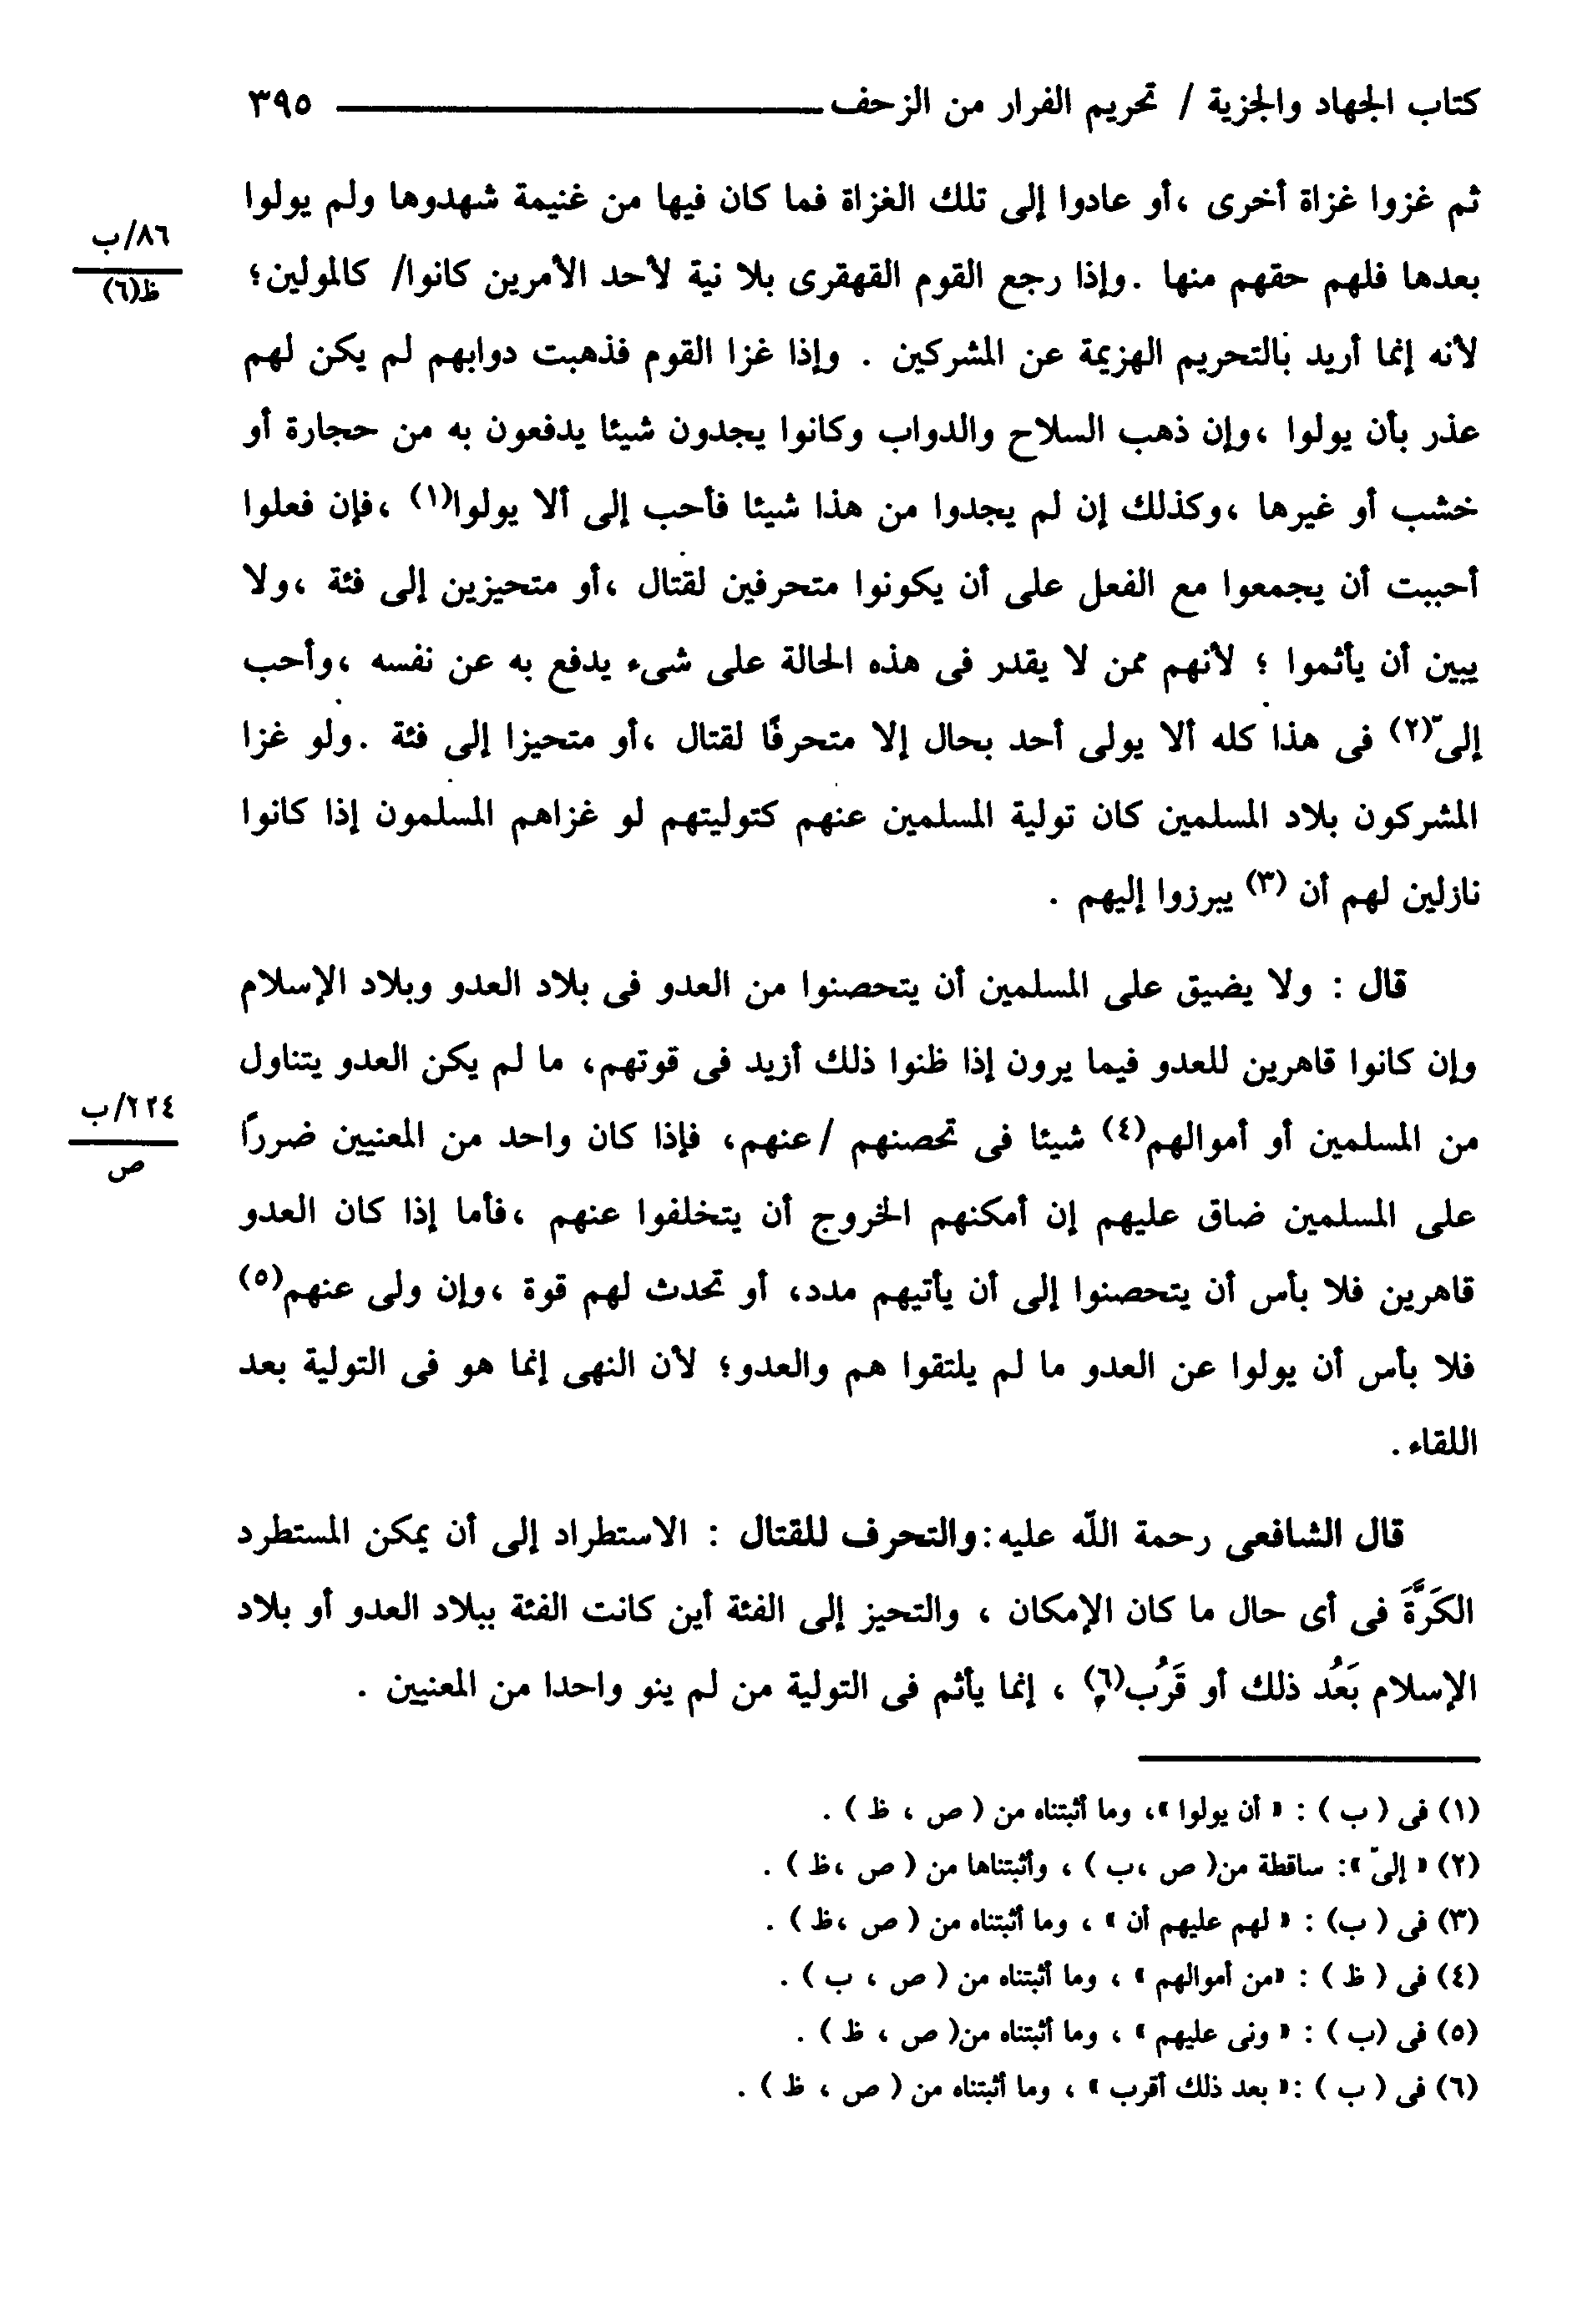 كتاب الجهاد والجزية / تحريم الفرار من الزحف ــــــــــــ ٣٩٥
ثم غزوا غزاة أخرى ،أو عادوا إلى تلك الغزاة فما كان فيها من غنيمة شهدوها ولم يولوا
٨٦/ب
ظ(٦)
بعدها فلهم حقهم منها .وإذا رجع القوم القهقرى بلا نية لأحد الأمرين كانوا/ كالمولين؛
لأنه إنما أريد بالتحريم الهزيمة عن المشركين . وإذا غزا القوم فذهبت دوابهم لم يكن لهم
عذر بأن يولوا ،وإن ذهب السلاح والدواب وكانوا يجدون شيئا يدفعون به من حجارة أو
خشب أو غيرها ،وكذلك إن لم يجدوا من هذا شيئا فأحب إلى ألا يولوا(١) ،فإن فعلوا
أحببت أن يجمعوا مع الفعل على أن يكونوا متحرفين لقتال ،أو متحيزين إلى فئة ،ولا
يبين أن يأثموا ؛ لأنهم ممن لا يقدر فى هذه الحالة على شىء يدفع به عن نفسه ،وأحب
إلىّ(٢) فى هذا كله ألا يولى أحد بحال إلا متحرفًا لقتال ،أو متحيزا إلى فئة .ولو غزا
المشركون بلاد المسلمين كان تولية المسلمين عنهم كتوليتهم لو غزاهم المسلمون إذا كانوا
نازلين لهم أن (٣) يبرزوا إليهم .
قال : ولا يضيق على المسلمين أن يتحصنوا من العدو فى بلاد العدو وبلاد الإسلام
وإن كانوا قاهرين للعدو فيما يرون إذا ظنوا ذلك أزيد فى قوتهم، ما لم يكن العدو يتناول
٢٢٤/ب
ص
من المسلمين أو أموالهم(٤) شيئا فى تحصنهم /عنهم، فإذا كان واحد من المعنيين ضررًا
على المسلمين ضاق عليهم إن أمكنهم الخروج أن يتخلفوا عنهم ،فأما إذا كان العدو
قاهرين فلا بأس أن يتحصنوا إلى أن يأتيهم مدد، أو تحدث لهم قوة ،وإن ولى عنهم(٥)
فلا بأس أن يولوا عن العدو ما لم يلتقوا هم والعدو؛ لأن النهى إنما هو فى التولية بعد
اللقاء .
قال الشافعى رحمة اللّه عليه:والتحرف للقتال : الاستطراد إلى أن يمكن المستطرد
الكَرَّةَ فى أى حال ما كان الإمكان ، والتحيز إلى الفئة أين كانت الفئة ببلاد العدو أو بلاد
الإسلام بَعُد ذلك أو قَرُب(٦) ، إنما يأثم فى التولية من لم ينو واحدا من المعنيين .
(١) فى ( ب ) : « أن يولوا »، وما أثبتناه من ( ص ، ظ ) .
(٢) « إلىّ »: ساقطة من( ص ،ب ) ، وأثبتناها من ( ص ،ظ ) .
(٣) فى ( ب) : « لهم عليهم أن » ، وما أثبتناه من ( ص ،ظ ) .
(٤) فى ( ظ ) : «من أموالهم » ، وما أثبتناه من ( ص ، ب ) .
(٥) فى (ب ) : « ونى عليهم » ، وما أثبتناه من( ص ، ظ ) .
(٦) فى ( ب ) :« بعد ذلك أقرب » ، وما أثبتناه من ( ص ، ظ ) .